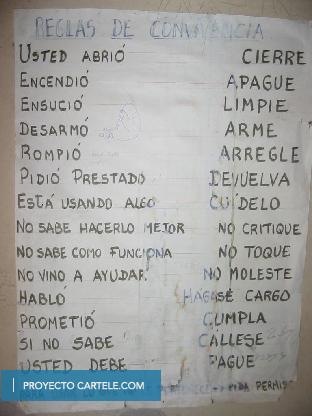 REGLAS DE CONVIVENCIA
USTED ABRIÓ CIERRE
ENCENDIÓ APAGUE
ENSUCIÓ LIMPIE
DESARMÓ ARME
ROMPIÓ ARREGLE
PIDIÓ PRESTADO DEVUELVA
ESTÁ USANDO ALGO CUÍDELO
NO SABE HACERLO MEJOR NO CRITIQUE
NO SABE COMO FUNCIONA NO TOQUE
NO VINO A AYUDAR NO MOLESTE
HABLÓ HAGASÉ CARGO
PROMETIÓ CUMPLA
SI NO SABE CALLESE
USTED DEBE PAGUE
PIDA PERMISO
PROYECTO CARTELE.COM